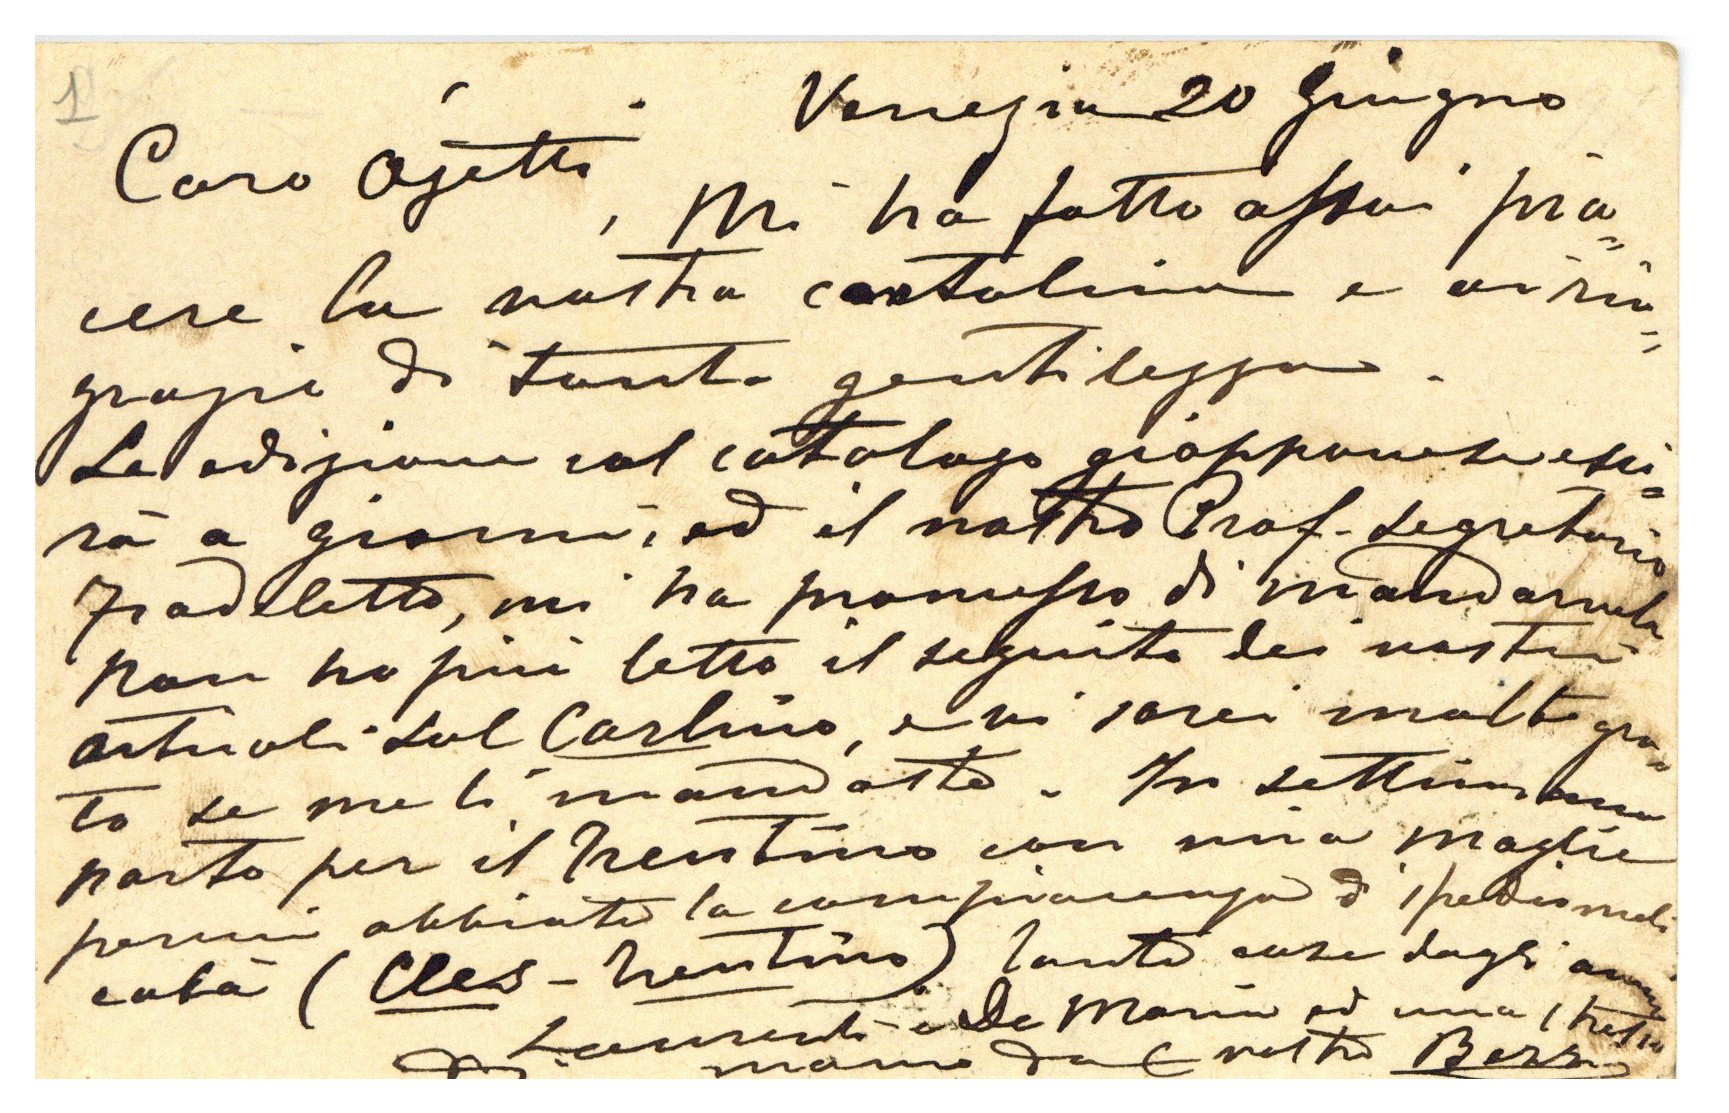 1
Venezia 20 Giugno
Caro Ojetti,
Mi ha fatto assai pia=
cere la vostra cartolina e vi rin=
grazio di tanta gentilezza.
La edizione col catalogo giapponese esci=
rà a giorni, ed il nostro Prof. segretario
Fradeletto, mi ha promesso di mandarvela
Non ho più letto il seguito dei vostri
articoli sul Carlino, e vi sarei molto gra=
to se me li mandaste. In settimana
parto per il Trentino con mia moglie
abbiate la compiacenza di spedirmeli
colà (Cles - Trentino) tante cose dagli amici
Laurenti e De Maria ed una stretta
di mano dal vostro Bezzi